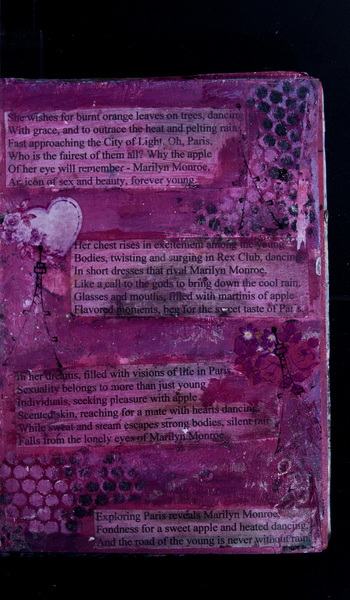 She wishes for burnt orange leaves on trees, dancing
With grace, and to outrace the heat and pelting rain,
Fast approaching the City of Light, Oh, Paris.
Who is the fairest of them all? Why the apple
Of her eye will remember - Marilyn Monroe,
An icon of sex and beauty, forever young.
Her chest rises in excitement among the young
Bodies, twisting and surging in Rex Club, dancing
In short dresses that rival Marilyn Monroe.
Like a call to the gods to bring down the cool rain,
Glasses and mouths, filled with martinis of apple
Flavored moments, beg for the sweet taste of Paris.
In her dreams, filled with visions of life in Paris,
Sexuality belongs to more than just young
Individuals, seeking pleasure with apple
Scented skin, reaching for a mate with hearts dancing.
While sweat and steam escapes strong bodies, silent rain
Falls from the lonely eyes of Marilyn Monroe.
Exploring Paris reveals Marilyn Monroe,
Fondness for a sweet apple and heated dancing,
And the road of the young is never without rain.